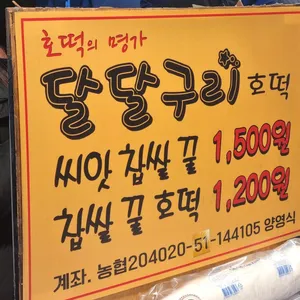 호떡의 명가
달달구리 호떡
씨앗 찹쌀 꿀 1,500원
찹쌀 꿀 호떡 1,200원
계좌. 농협204020-51-144105 양영식